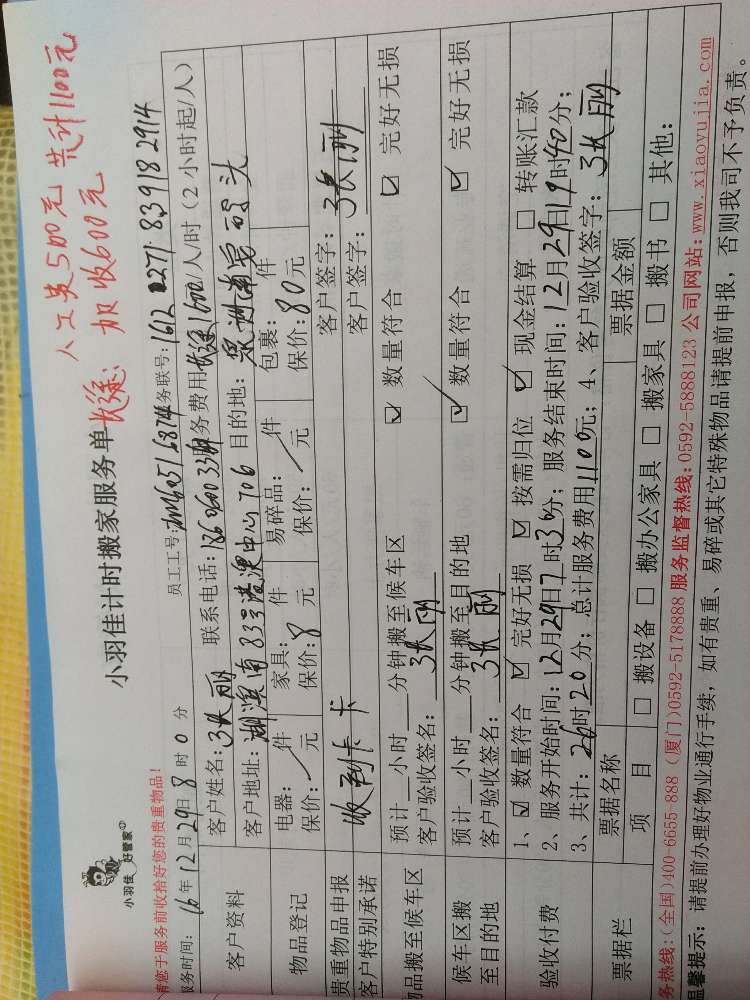 小羽佳 好管家
小羽佳计时搬家服务单
人工费500元 共计1100元
长途: 加收600元
请您于服务前收拾好您的贵重物品!
服务时间: 16年12月29日8时0分 员工工号: 务联号: 1612 0271. 839182914
客户资料
客户姓名: 张丽 联系电话: 服务费用长途1600/人/时(2小时起/人)
客户地址: 湖滨南83号港澳中心706 目的地: 泉州南安码头
物品登记
电器: 件 家具: 件 易碎品: 件 包裹: 件
保价: 元 保价: 8 元 保价: 元 保价: 80元
贵重物品申报 客户签字: 张丽
客户特别承诺 收到卡卡 客户签字: 张丽
物品搬至候车区
预计 小时 分钟搬至候车区 ☑ 数量符合 ☑ 完好无损
客户验收签名: 张丽
候车区搬至目的地
预计 小时 分钟搬至目的地 ☑ 数量符合 ☑ 完好无损
客户验收签名: 张丽
验收付费
1、☑ 数量符合 ☑ 完好无损 ☑ 按需归位 ☑ 现金结算 □ 转账汇款
2、服务开始时间: 12月29日7时30分; 服务结束时间: 12月29日19时40分;
3、共计: 时20分; 总计服务费用1100元; 4、客户验收签字: 张丽
票据栏
票据名称 票据金额
项 目 □ 搬设备 □ 搬办公家具 □ 搬家具 □ 搬书 □ 其他:
务热线:(全国)400-6655-888 (厦门)0592-5178888 服务监督热线:0592-5888123 公司网站:www.xiaoyujia.com
温馨提示: 请提前办理好物业通行手续, 如有贵重、易碎或其它特殊物品请提前申报, 否则我司不予负责。